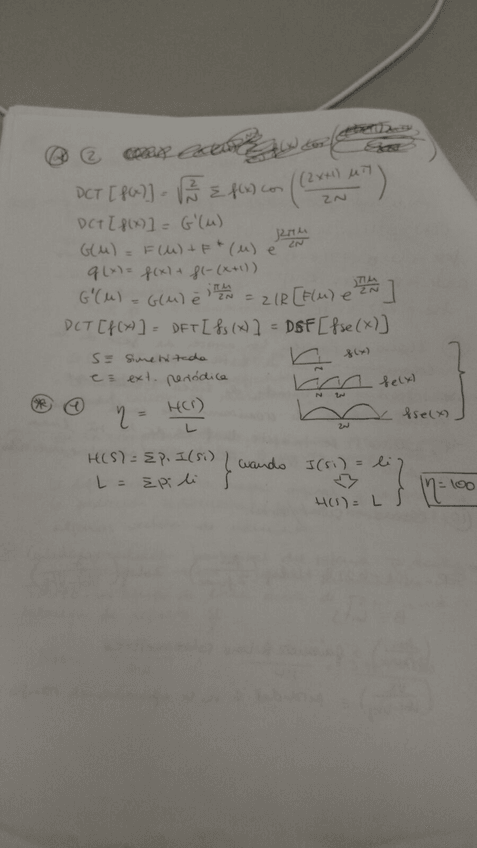 ② 
DCT[f(x)] = √(2/N) Σ f(x) cos((2x+1)μπ / 2N)
DCT[f(x)] = G'(μ)
G(μ) = F(μ) + F*(μ) e^(j2πμ/2N)
g(x) = f(x) + f(-(x+1))
G'(μ) = G(μ) e^(-jπμ/2N) = 2ℝ[F(μ) e^(jπμ/2N)]
DCT[f(x)] = DFT[fs(x)] = DSF[fse(x)]
S ≡ simetrizada
e ≡ ext. periódica
f(x)
N
fe(x)
N 2N
fse(x)
2N
η = H(S)/L
H(S) = Σ pi I(si)
L = Σ pi li
cuando
I(si) = li
⇓
H(S) = L
η = 100